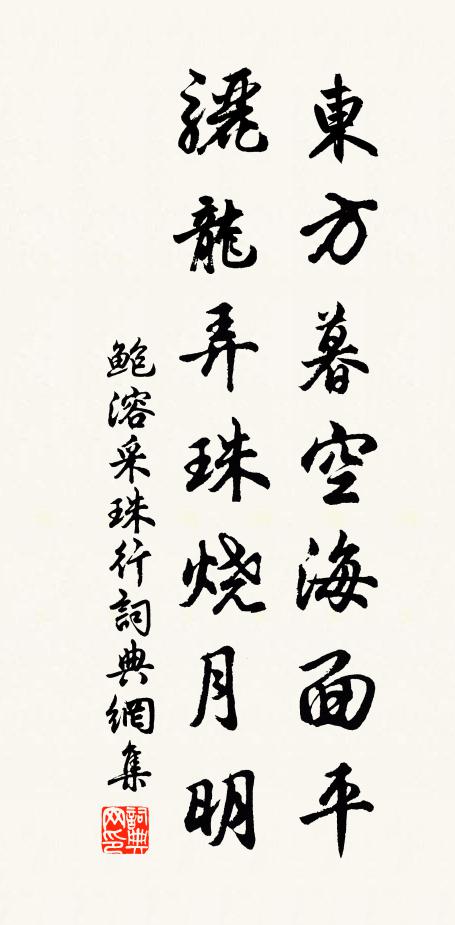 東方暮空海面平
驪龍弄珠烧月明
鮑溶采珠行詞典網集
詞典網印